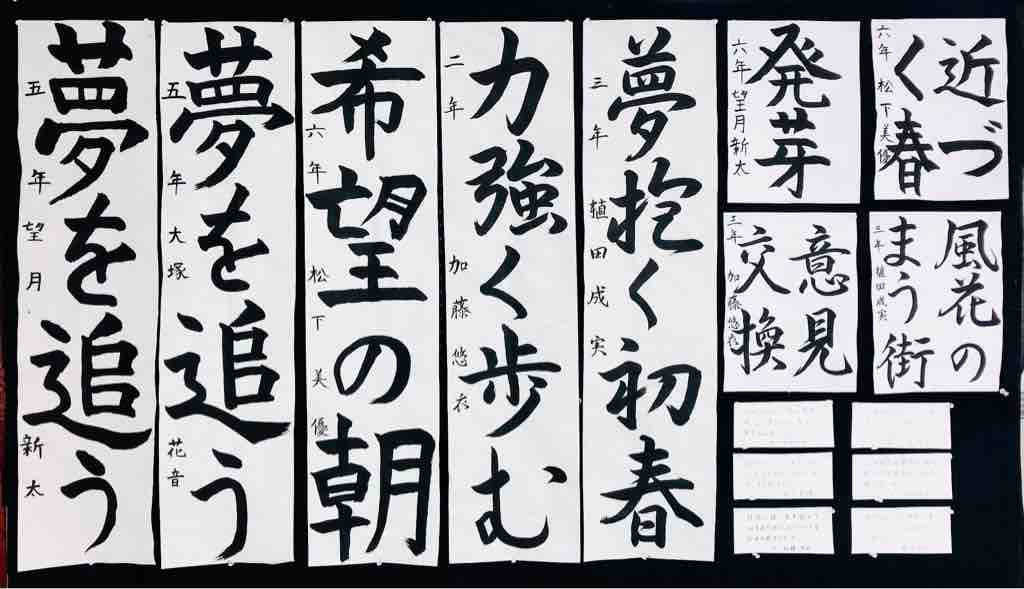 近づ
く春
六年 松下美優
発芽
六年 望月新太
風花の
まう街
三年 植田成実
意見
交換
三年 加藤悠衣
夢抱く初春
三年 植田成実
力強く歩む
二年 加藤悠衣
希望の朝
六年 松下美優
夢を追う
五年 大塚花音
夢を追う
五年 望月新太